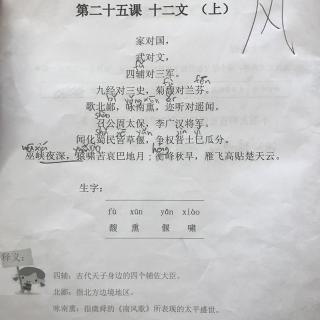 第二十五课 十二文 （上）
风
家对国，
武对文，
四辅对三军。
九经对三史，菊馥对兰芬。
歌北鄙，咏南薰，迩听对遥闻。
召公周太保，李广汉将军。
闻化蜀民皆草偃，争权晋土已瓜分。
巫峡夜深，猿啸苦哀巴地月；衡峰秋早，雁飞高贴楚天云。
生字：
fù xūn yǎn xiào
馥 熏 偃 啸
释义：
四辅：古代天子身边的四个辅佐大臣。
北鄙：指北方边境地区。
咏南薰：指虞舜的《南风歌》所表现的太平盛世。